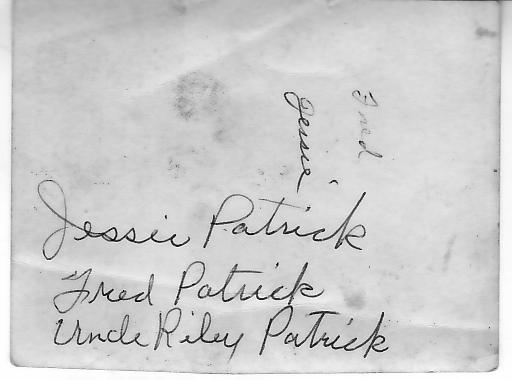 Fred
Jessie
Jessie Patrick
Fred Patrick
Uncle Riley Patrick